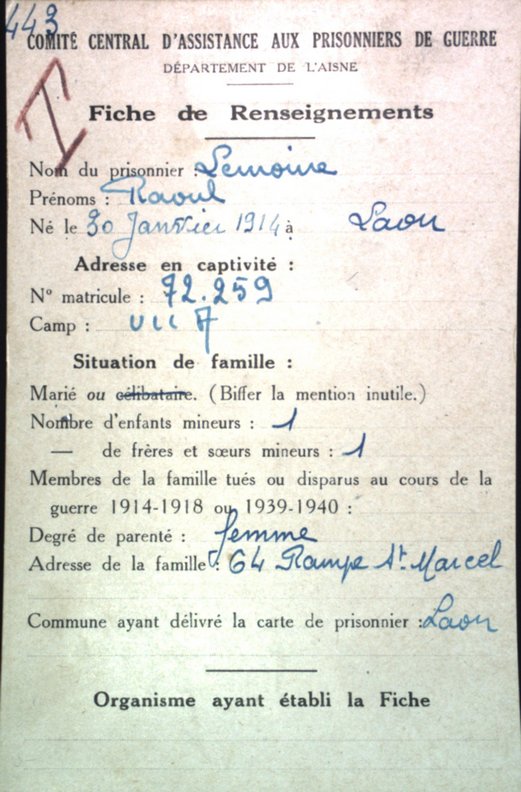 443
COMITÉ CENTRAL D'ASSISTANCE AUX PRISONNIERS DE GUERRE
DÉPARTEMENT DE L'AISNE
I
Fiche de Renseignements
Nom du prisonnier : Lemoine
Prénoms : Raoul
Né le 30 Janvier 1914 à Laon
Adresse en captivité :
N° matricule : 72.259
Camp : VII A
Situation de famille :
Marié ou célibataire. (Biffer la mention inutile.)
Nombre d'enfants mineurs : 1
— de frères et sœurs mineurs : 1
Membres de la famille tués ou disparus au cours de la
guerre 1914-1918 ou 1939-1940 :
Degré de parenté : femme
Adresse de la famille : 64 Rampe St. Marcel
Commune ayant délivré la carte de prisonnier : Laon
Organisme ayant établi la Fiche